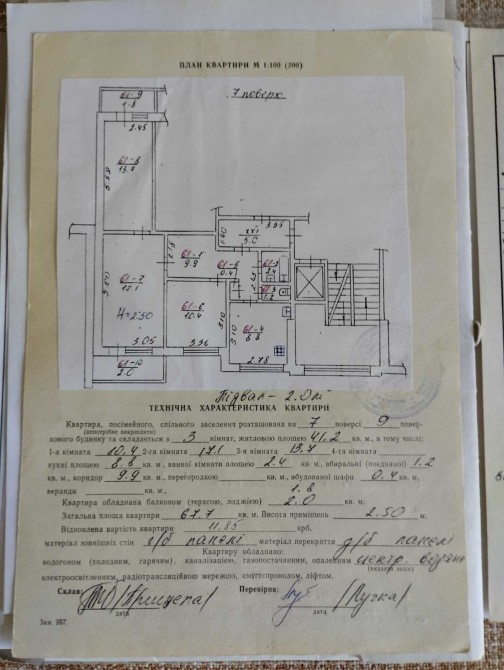 ПЛАН КВАРТИРИ М 1:100 (200)
7 поверх
61-9
1.8
2.45
61-8
13.7
5.59
3.95
XVI
5.0
1.40
61-1
9.9
2.18
61-5
0.4
61-2
2.4
61-3
1.2
61-7
17.1
H=2.50
3.05
61-6
10.4
3.10
3.36
61-4
8.8
3.10
2.78
61-10
2.0
Підвал - 2.0 м²
ТЕХНІЧНА ХАРАКТЕРИСТИКА КВАРТИРИ
Квартира, посімейного, спільного заселення розташована на 7 поверсі 9 повер-
(непотрібне викреслити)
хового будинку та складається з 3 кімнат, житловою площею 41,2 кв. м., в тому числі:
1-а кімната 10,4 2-га кімната 17,1 3-я кімната 13,7 4-та кімната
кухні площею 8.8 кв. м., ванної кімнати площею 2.4 кв. м., вбиральні (поєднаної) 1.2
кв. м., коридор 9.9 кв. м., перегородкою кв. м., вбудованої шафи 0.4 кв. м.
веранди кв. м., 1.8
Квартира обладнана балконом (терасою, лоджією) 2.0 кв. м.
Загальна площа квартири 67.7 кв. м. Висота приміщень 2.50 м.
Відновлена вартість квартири 11.85 крб.
матеріал зовнішніх стін з/б панелі матеріал перекриття з/б панелі
Квартиру обладнано:
водогоном (холодним, гарячим), каналізацією, газопостачанням, опаленням центр. водяне
(вказати яким)
електроосвітленням, радіотрансляційною мережею, сміттєпроводом, ліфтом.
Склав: /Прищепа/
Перевірив: /Лучка/
дата
дата
Зам. 987.